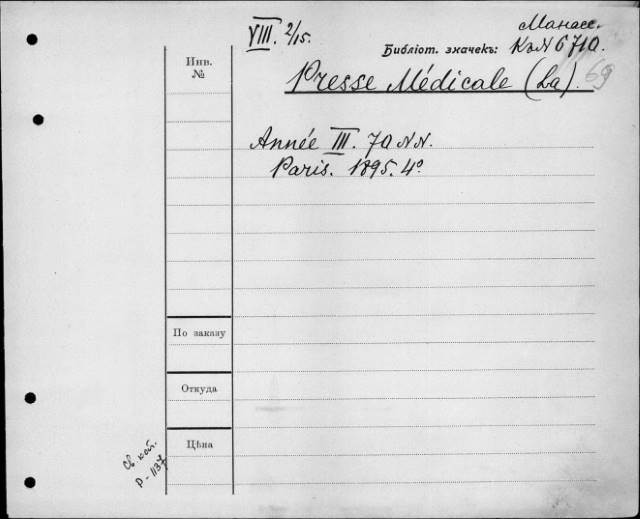 VIII. 2/15.
Манасс.
Библіот. значекъ: КъN 6710.
69
Инв.
№
Presse Médicale (La).
Année III. 70 NN.
Paris. 1895. 4º
По заказу
Откуда
Цѣна
Св. кат.
Р-1137